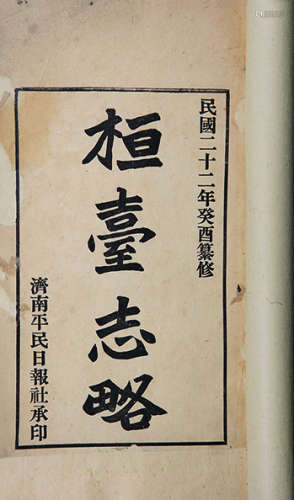 民國二十二年癸酉纂修
桓臺志略
濟南平民日報社承印